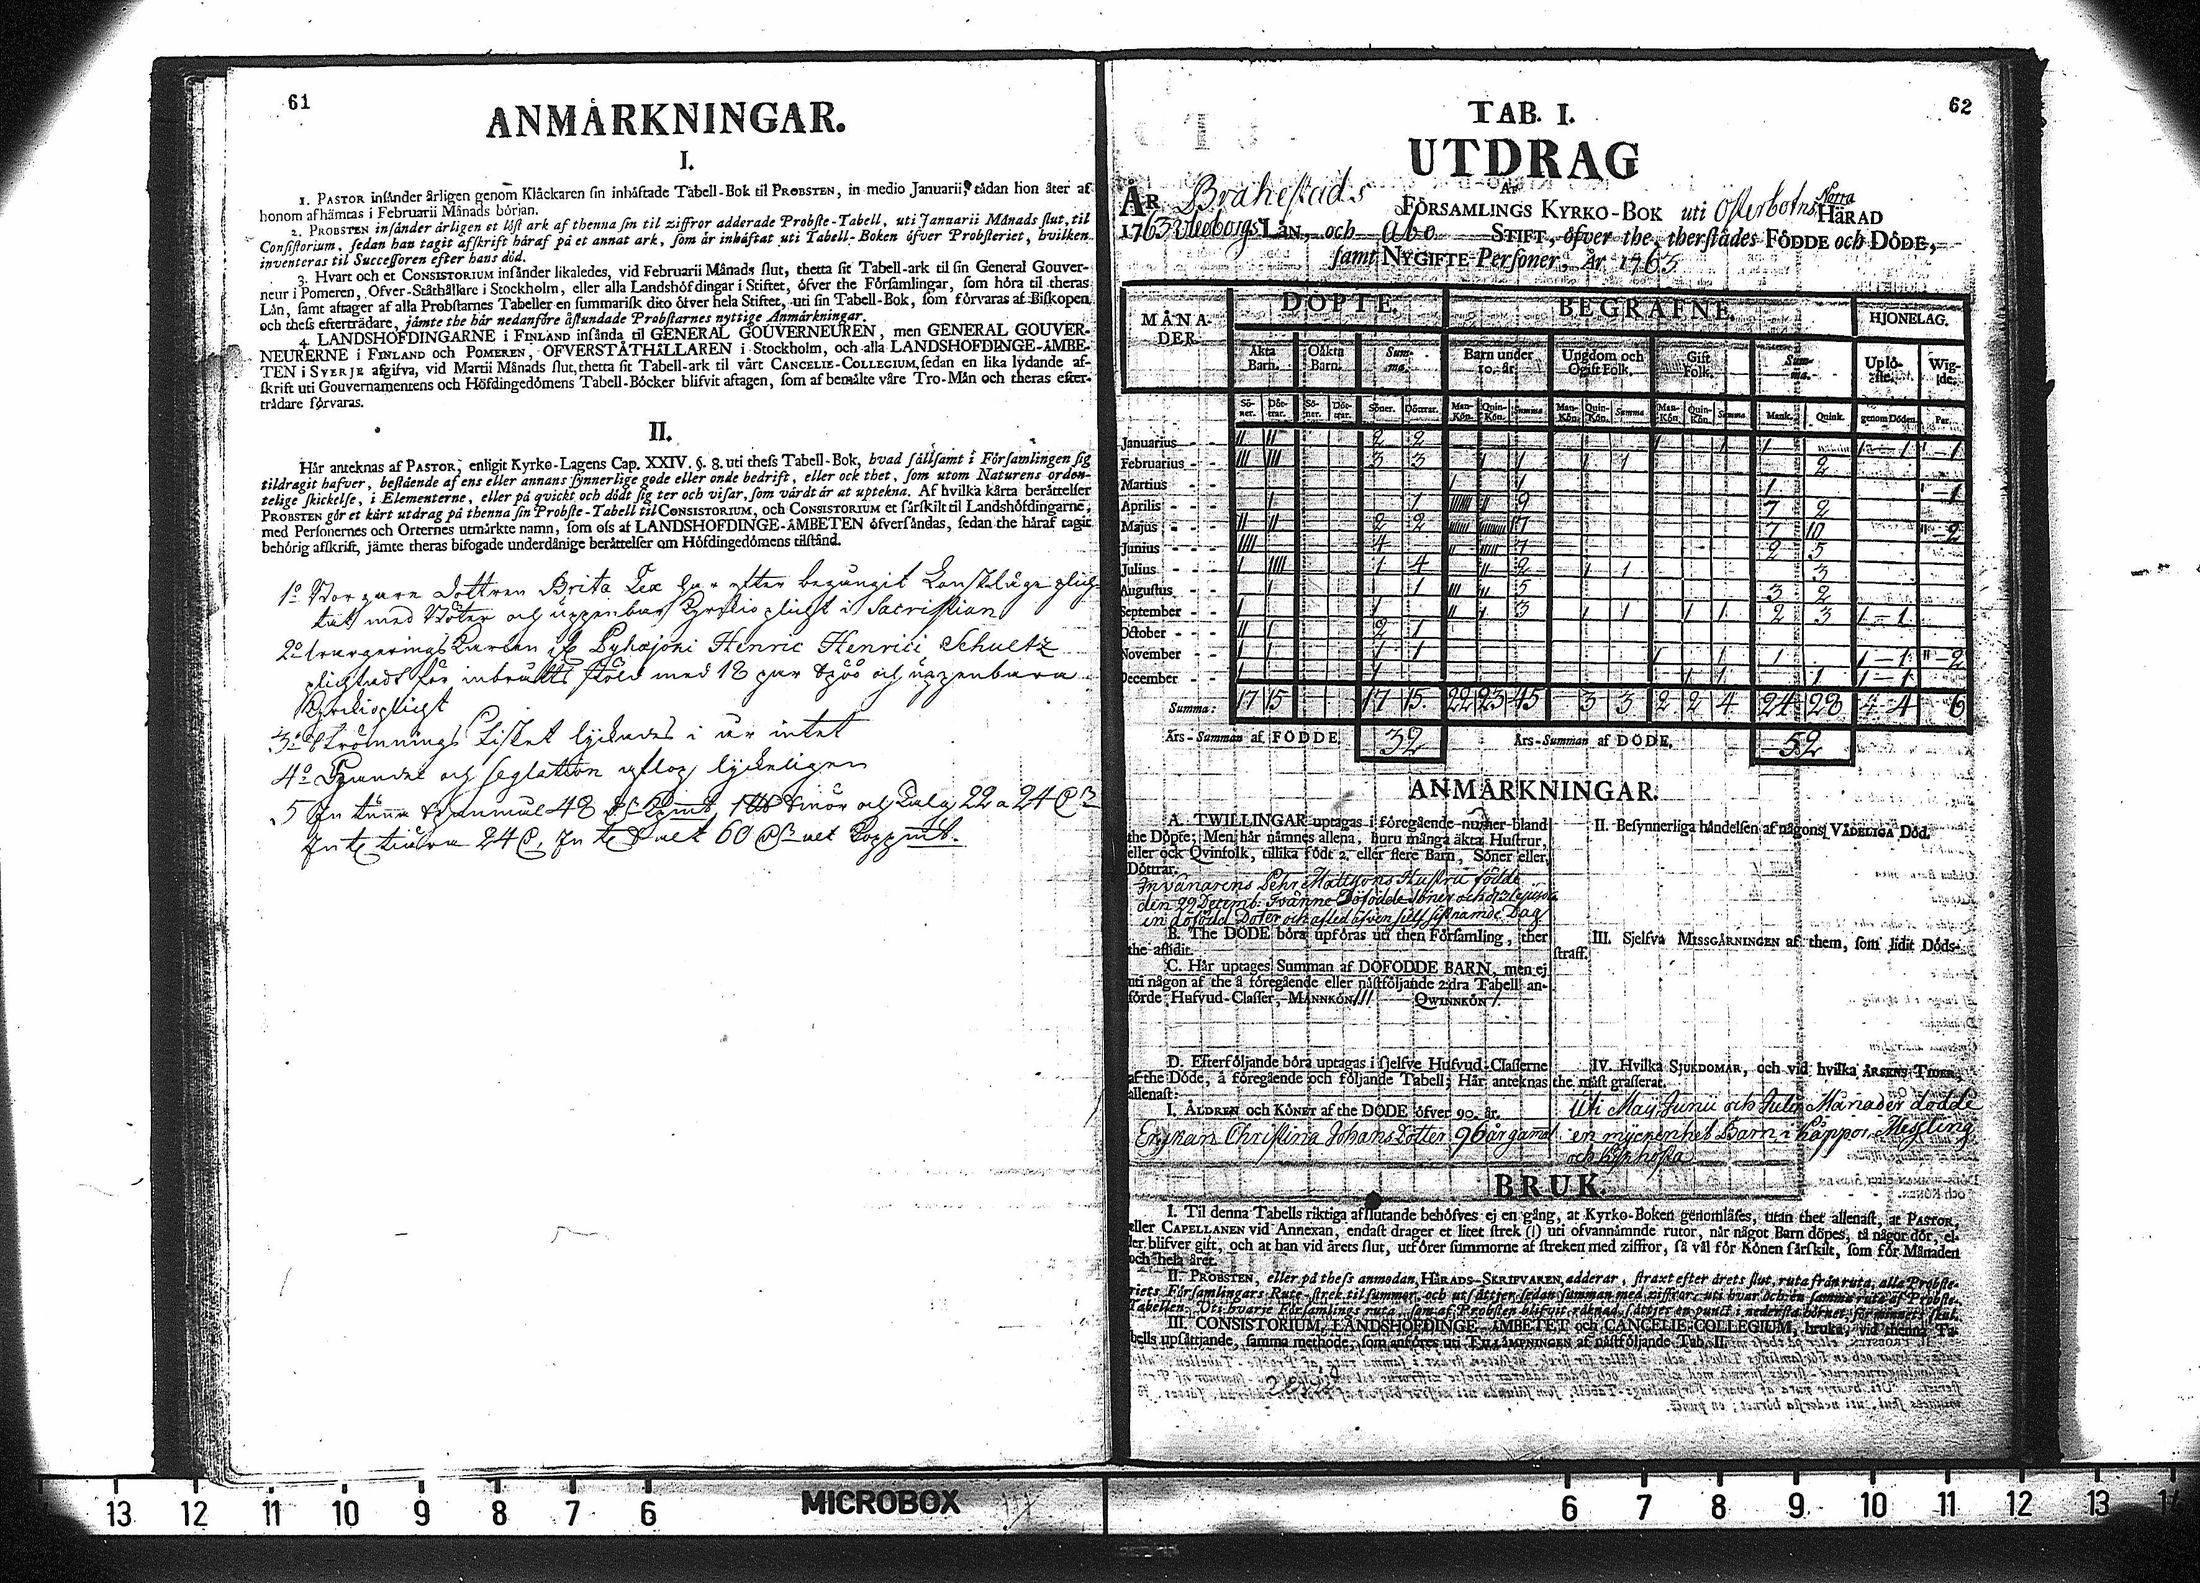 61
ANMÅRKNINGAR.
I.
1. PASTOR insånder årligen genom Klåckaren sin inhåftade Tabell-Bok til PROBSTEN, in medio Januarii, sådan hon åter af
honom afhåmtas i Februarii Månads början.
2. PROBSTEN insånder årligen et löst ark af thenna sin til ziffror adderade Probste-Tabell, uti Januarii Månads slut, til
Consistorium, sedan han tagit afskrift håraf på et annat ark, som år inhåftat uti Tabell-Boken öfver Probsteriet, hvilken
inventeras til Successoren efter hans död.
3. Hvart och et CONSISTORIUM insånder likaledes, vid Februarii Månads slut, thetta sit Tabell-ark til sin General Gouver-
neur i Pomeren, Öfver-Ståthållare i Stockholm, eller alla Landshöfdingar i Stiftet, öfver the Församlingar, som höra til theras
Lån, samt aftager af alla Probstarnes Tabeller en summarisk dito öfver hela Stiftet, uti sin Tabell-Bok, som förvaras af Biskopen
och thess eftertrådare, jåmte the hår nedanföre åstundade Probstarnes nyttige Anmårkningar.
4. LANDSHÖFDINGARNE i FINLAND insånda til GENERAL GOUVERNEUREN, men GENERAL GOUVER-
NEURERNE i FINLAND och POMEREN, ÖFVERSTÅTHÅLLAREN i Stockholm, och alla LANDSHÖFDINGE-ÅMBE-
TEN i SVERJE afgifva, vid Martii Månads slut, thetta sit Tabell-ark til vårt CANCELIE-COLLEGIUM, sedan en lika lydande af-
skrift uti Gouvernamentens och Höfdingedömens Tabell-Böcker blifvit aftagen, som af bemålte våre Tro-Mån och theras efter-
trådare förvaras.
II.
Hår anteknas af PASTOR, enligit Kyrko-Lagens Cap. XXIV. §. 8. uti thess Tabell-Bok, hvad sållsamt i Församlingen sig
tildragit hafver, bestående af ens eller annans synnerlige gode eller onde bedrift, eller ock thet, som utom Naturens orden-
telige skickelse, i Elementerne, eller på qvickt och dödt sig ter och visar, som vårdt år at uptekna. Af hvilka kårta beråttelser
PROBSTEN gör et kårt utdrag på thenna sin Probste-Tabell til CONSISTORIUM, och CONSISTORIUM et sårskilt til Landshöfdingarne,
med Personernes och Orternes utmårkte namn, som oss af LANDSHÖFDINGE-ÅMBETEN öfversåndas, sedan the håraf tagit
behörig afskrift, jåmte theras bifogade underdånige beråttelser om Höfdingedömens tilstånd.
1º Borgare Dottren Brita Lex har efter begångit
med Böter och uppenbar Kyrkio plicht i Sacristian
2º Pyhäjoki Henric Henrici Schultz
plichtadt för inbråtts stöld med 18 par spöö och uppenbara
Kyrkioplicht
3º Strömmings Fisket lyckades i år intet
4º Handel och seglation aflop lyckeligen
5
62
TAB. I.
UTDRAG
AF
ÅR Brahestads FÖRSAMLINGS KYRKO-BOK uti Österbotns Norra HÄRAD
1763 Uleåborgs LÄN, och Åbo STIFT, öfver the, therstådes FÖDDE och DÖDE,
samt NYGIFTE Personer, År 1763
MÅNA-DER. DÖPTE. BEGRAFNE. HJONELAG.
Äkta Barn. Oåkta Barn. Sum-ma. Barn under 10. år. Ungdom och Ogift Folk. Gift Folk. Sum-ma. Uplö-ste. Wig-de.
Sö-ner. Döt-trar. Sö-ner. Döt-trar. Söner. Döttrar. Man-Kön. Quin-Kön. Summa Man-Kön. Quin-Kön. Summa Man-Kön. Quin-Kön. Summa Mank. Quink. genom Döden. Par.
Januarius - - II II 2 2 1 1 1 1 - 1 1 - 1
Februarius - - III III 3 3 1 1 1 1 2
Martius - - 1 1 1 1 - 1
Aprilis - - 1 1 9 7 2
Majus - - II II 2 2 17 7 10 II - 2
Junius - - IIII 4 II IIIII 7 2 5
Julius - - 1 IIII 1 4 II 2 1 1 3
Augustus - - 1 1 III II 5 3 2
September - - 1 1 II 1 3 1 1 1 1 2 3 1 - 1
October - - II 1 2 1
November - - 1 1 1 1 1 1 1 1 - 1 II - 2
December - - 1 1 1 1 1 1 - 1
Summa: 17 15 17 15 22 23 45 3 3 2 2 4 24 28 4 4 6
Års-Summan af FÖDDE. 32 Års-Summan af DÖDE. 52
ANMÅRKNINGAR.
A. TWILLINGAR uptagas i föregående numer bland
the Döpte; Men hår nåmnes allena, huru många åkta Hustrur,
eller ock Qvinfolk, tillika födt 2. eller flere Barn, Söner eller
Döttrar.
Invånarens Pehr Mattssons Hustru födde
den 29 Decemb. Tvånne Döfödde söner och d 31 ejusd
en döfödd Doter och afled åfven sielf sistnämde Dag
B. The DÖDE böra upföras uti then Församling, ther
the aflidit.
C. Hår uptages Summan af DÖFÖDDE BARN, men ej
uti någon af the å föregående eller nåstföljande 2:dra Tabell an-
förde Hufvud-Classer, MANNKÖN III QWINNKÖN I.
D. Efterföljande böra uptagas i sjelfve Hufvud-Classerne
af the Döde, å föregående och följande Tabell; Hår anteknas
allenast:
I. ÅLDREN och KÖNET af the DÖDE öfver 90. år.
Enkan Christina Johans Dotter 96 år gamal
II. Besynnerliga håndelsen af någons VÅDELIGA Död.
III. Sjelfva MISSGÅRNINGEN af them, som lidit Döds-
straff.
IV. Hvilka SJUKDOMAR, och vid hvilka ÅRSENS TIDER,
the måst grasserat.
Uti May Junii och Julii Månader dödde
en myckenhet Barn i Kåppor, Messling
och Kikhosta
BRUK.
I. Til denna Tabells riktiga afslutande behöfves ej en gång, at Kyrko-Boken genomlåses, utan thet allenast, at PASTOR,
eller CAPELLANEN vid Annexan, endast drager et litet strek (I) uti ofvannåmnde rutor, når något Barn döpes, tå någor dör, el-
ler blifver gift, och at han vid årets slut, utförer summorne af streken med ziffror, så vål för Könen sårskilt, som för Månaden
och hela året.
II. PROBSTEN, eller på thess anmodan, HÅRADS-SKRIFVAREN, adderar, straxt efter årets slut, ruta från ruta, alla Probste-
riets Församlingars Rute-strek til summor, och utsåttjer sedan summan med ziffror, uti hvar och en samma ruta af Probste-
Tabellen. Uti hvarje Församlings ruta, som af Probsten blifvit råknad, såttjes en punct i nedersta hörnet, för minnets skul.
III. CONSISTORIUM, LANDSHÖFDINGE-ÅMBETET och CANCELIE-COLLEGIUM, bruka, vid thenna Ta-
bells upsåttjande, samma methode, som anföres uti TILLÅMPNINGEN af nåstföljande Tab. II.
13 12 11 10 9 8 7 6 MICROBOX 6 7 8 9 10 11 12 13